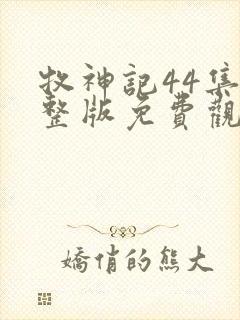 牧神記44集
整版免費觀
嬌俏的熊大